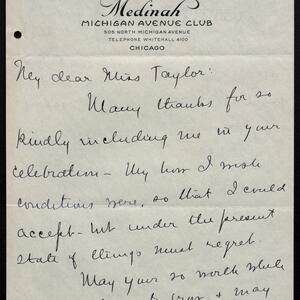 Medinah
MICHIGAN AVENUE CLUB
505 NORTH MICHIGAN AVENUE
TELEPHONE WHITEHALL 4100
CHICAGO
My dear Miss Taylor:
Many thanks for so
kindly including me in your
celebration - My how I wish
conditions were, so that I could
accept - but under the present
state of things must regret.
May your so worth while
& may